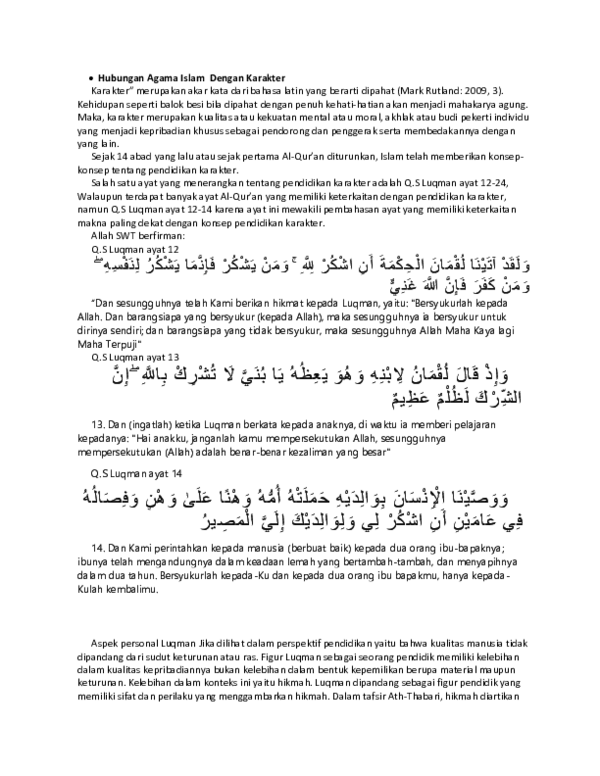 • Hubungan Agama Islam Dengan Karakter
Karakter" merupakan akar kata dari bahasa latin yang berarti dipahat (Mark Rutland: 2009, 3).
Kehidupan seperti balok besi bila dipahat dengan penuh kehati-hatian akan menjadi mahakarya agung.
Maka, karakter merupakan kualitas atau kekuatan mental atau moral, akhlak atau budi pekerti individu
yang menjadi kepribadian khusus sebagai pendorong dan penggerak serta membedakannya dengan
yang lain.
Sejak 14 abad yang lalu atau sejak pertama Al-Qur'an diturunkan, Islam telah memberikan konsep-
konsep tentang pendidikan karakter.
Salah satu ayat yang menerangkan tentang pendidikan karakter adalah Q.S Luqman ayat 12-24,
Walaupun terdapat banyak ayat Al-Qur'an yang memiliki keterkaitan dengan pendidikan karakter,
namun Q.S Luqman ayat 12-14 karena ayat ini mewakili pembahasan ayat yang memiliki keterkaitan
makna paling dekat dengan konsep pendidikan karakter.
Allah SWT berfirman:
Q.S Luqman ayat 12
وَلَقَدْ آتَيْنَا لُقْمَانَ الْحِكْمَةَ أَنِ اشْكُرْ لِلَّهِ ۚ وَمَنْ يَشْكُرْ فَإِنَّمَا يَشْكُرُ لِنَفْسِهِ ۖ
وَمَنْ كَفَرَ فَإِنَّ اللَّهَ غَنِيٌّ
"Dan sesungguhnya telah Kami berikan hikmat kepada Luqman, yaitu: "Bersyukurlah kepada
Allah. Dan barangsiapa yang bersyukur (kepada Allah), maka sesungguhnya ia bersyukur untuk
dirinya sendiri; dan barangsiapa yang tidak bersyukur, maka sesungguhnya Allah Maha Kaya lagi
Maha Terpuji"
Q.S Luqman ayat 13
وَإِذْ قَالَ لُقْمَانُ لِابْنِهِ وَهُوَ يَعِظُهُ يَا بُنَيَّ لَا تُشْرِكْ بِاللَّهِ ۖ إِنَّ
الشِّرْكَ لَظُلْمٌ عَظِيمٌ
13. Dan (ingatlah) ketika Luqman berkata kepada anaknya, di waktu ia memberi pelajaran
kepadanya: "Hai anakku, janganlah kamu mempersekutukan Allah, sesungguhnya
mempersekutukan (Allah) adalah benar-benar kezaliman yang besar"
Q.S Luqman ayat 14
وَوَصَّيْنَا الْإِنْسَانَ بِوَالِدَيْهِ حَمَلَتْهُ أُمُّهُ وَهْنًا عَلَىٰ وَهْنٍ وَفِصَالُهُ
فِي عَامَيْنِ أَنِ اشْكُرْ لِي وَلِوَالِدَيْكَ إِلَيَّ الْمَصِيرُ
14. Dan Kami perintahkan kepada manusia (berbuat baik) kepada dua orang ibu-bapaknya;
ibunya telah mengandungnya dalam keadaan lemah yang bertambah-tambah, dan menyapihnya
dalam dua tahun. Bersyukurlah kepada-Ku dan kepada dua orang ibu bapakmu, hanya kepada-
Kulah kembalimu.
Aspek personal Luqman Jika dilihat dalam perspektif pendidikan yaitu bahwa kualitas manusia tidak
dipandang dari sudut keturunan atau ras. Figur Luqman sebagai seorang pendidik memiliki kelebihan
dalam kualitas kepribadiannya bukan kelebihan dalam bentuk kepemilikan berupa material maupun
keturunan. Kelebihan dalam konteks ini yaitu hikmah. Luqman dipandang sebagai figur pendidik yang
memiliki sifat dan perilaku yang menggambarkan hikmah. Dalam tafsir Ath-Thabari, hikmah diartikan